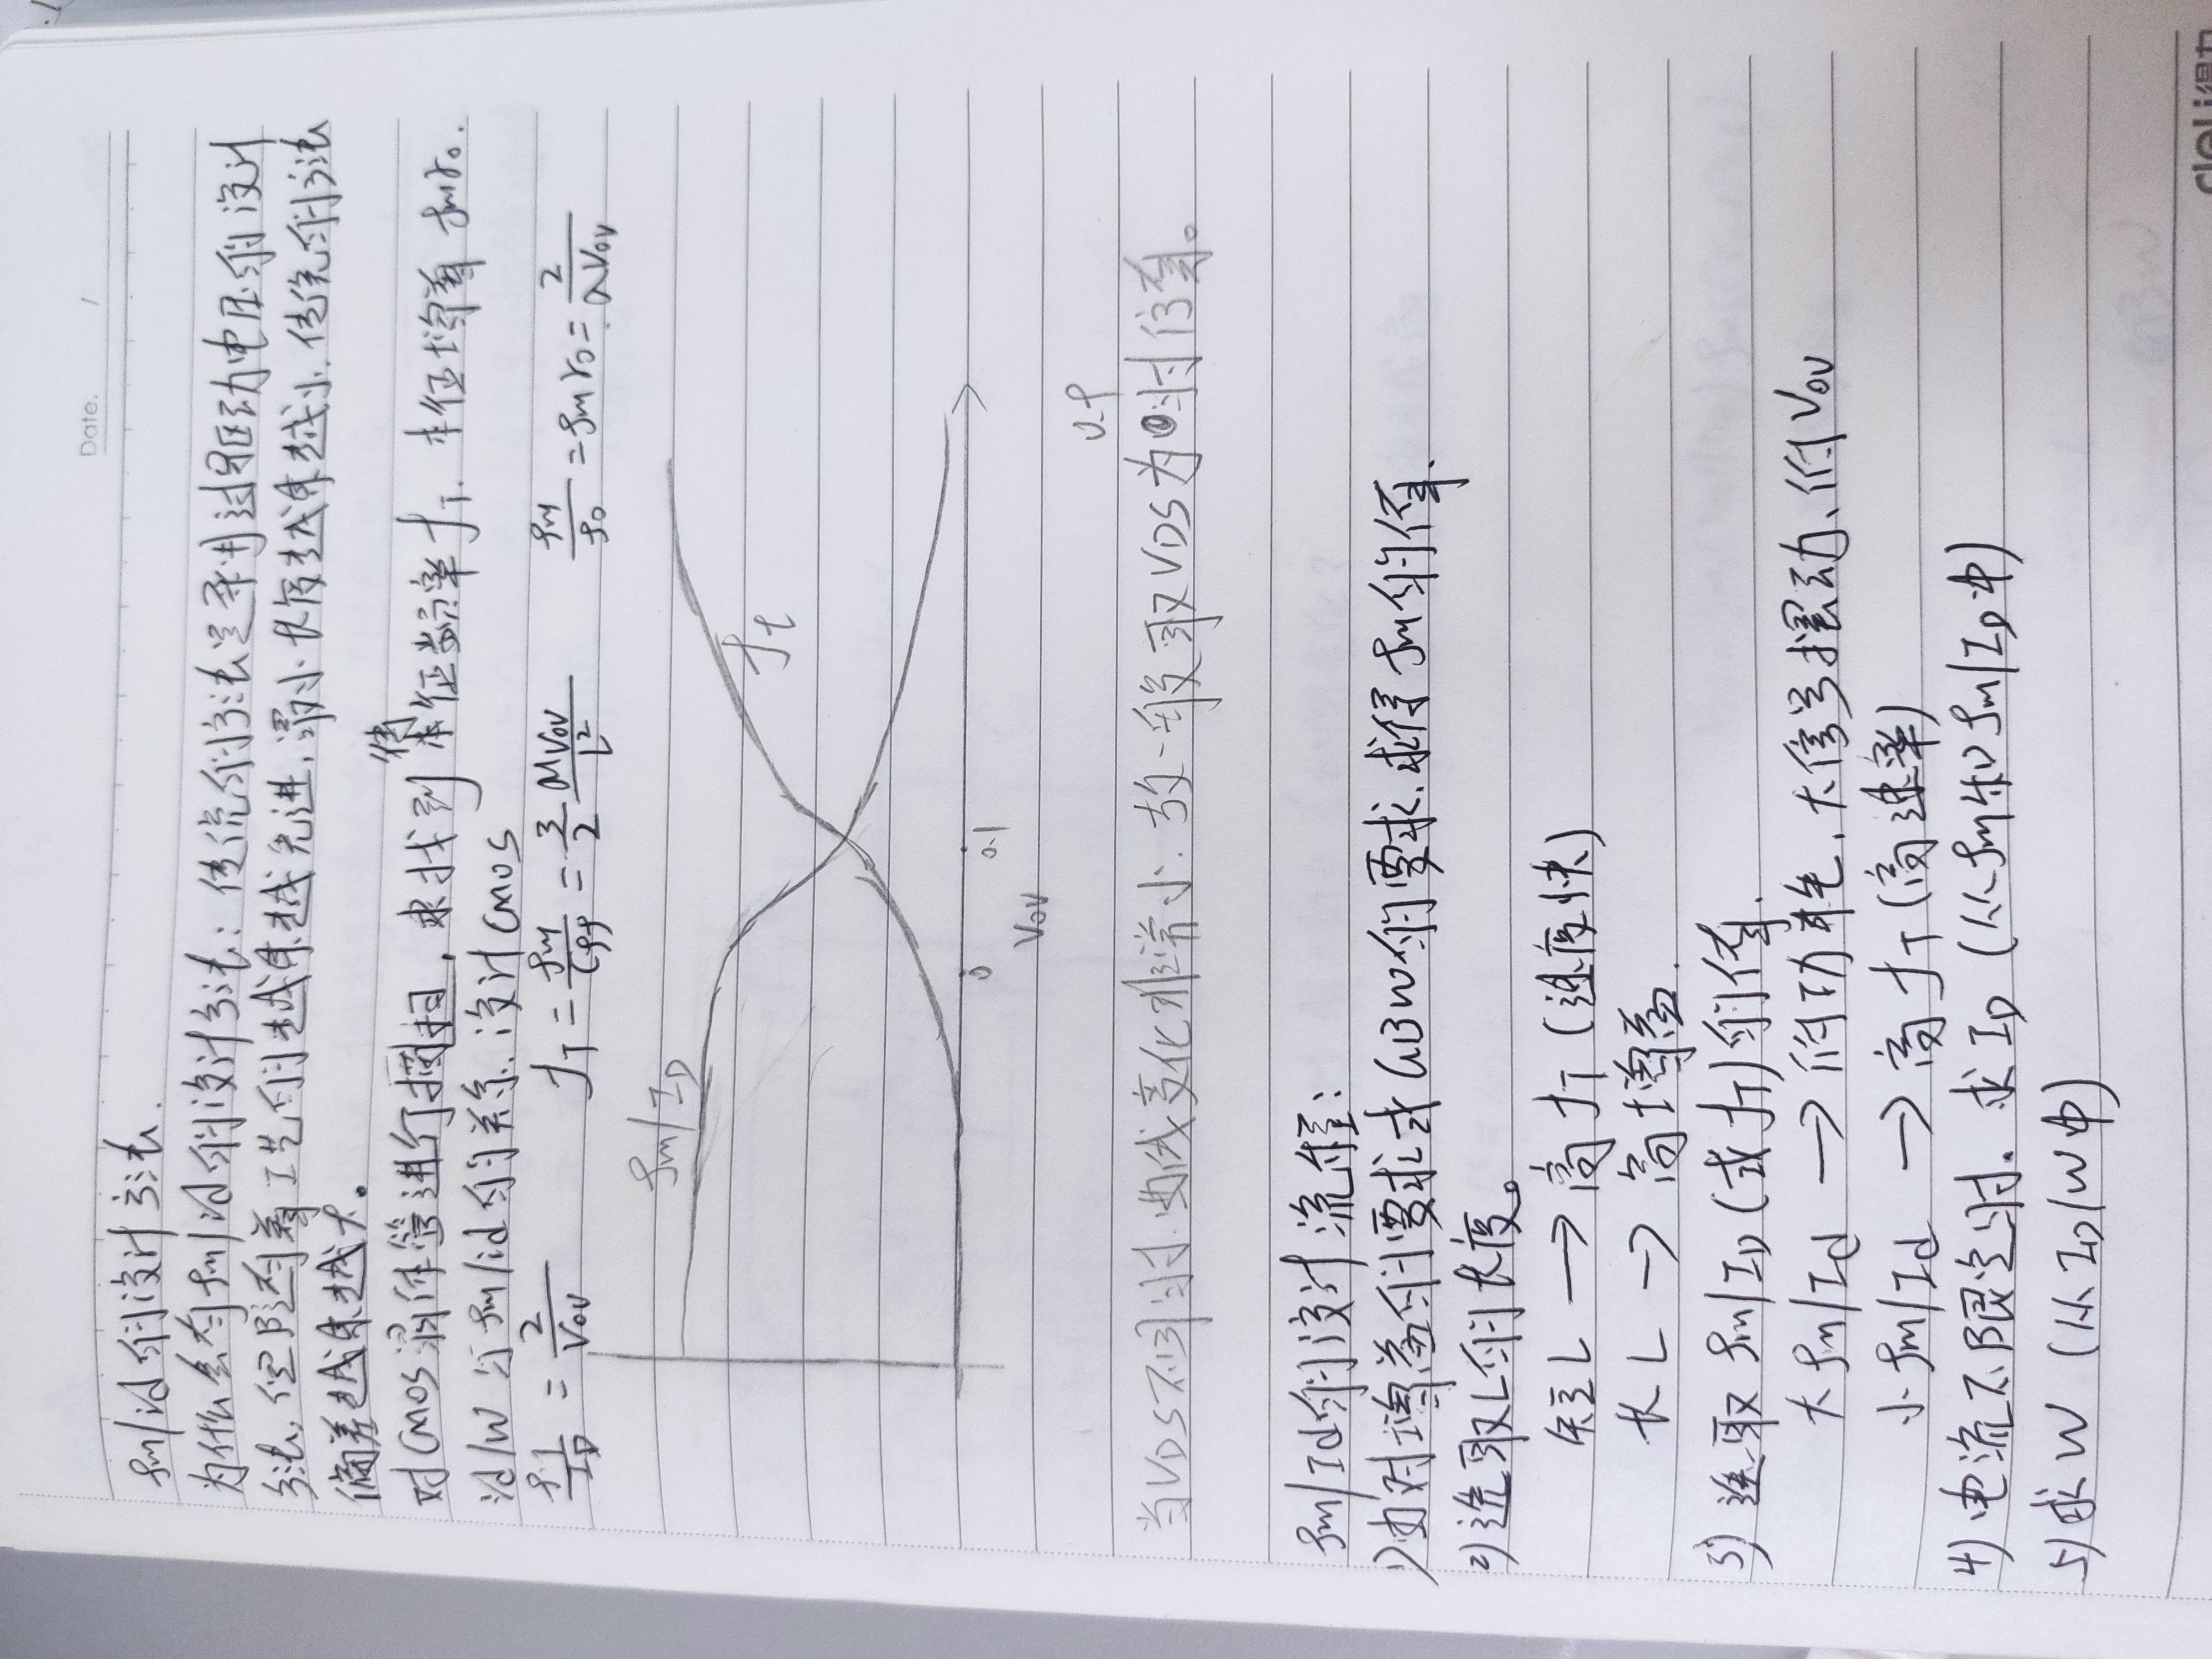 Date. /
gm/id的设计方法.
为什么有gm/id的设计方法: 传统的方法是采用过驱动电压的设计
方法, 但随着工艺的越来越先进, 最小长度越来越小. 传统的方法
偏差越来越大。
对CMOS器件管进行扫描, 来找到本征频率fT. 本征增益 gmro.
id/W 与 gm/id的关系. 设计CMOS
gm/ID = 2/Vov fT = gm/Cgg = 3/2 μVov/L² gm/go = gmro = 2/λVov
gm/ID
ft
0 0.1
Vov
0.9
当VDS不同时, 曲线变化非常小. 故一般取VDS为 时候值。
gm/Id的设计流程:
1) 由对增益的要求或GBW的要求. 求得gm的值.
2) 选取L的长度。
短L → 高fT (速度快)
长L → 高增益.
3) 选取 gm/ID (或fT)的值.
大gm/Id → 低功耗, 大信号摆动、低Vov
小gm/Id → 高fT (高速率)
4) 电流不限定时. 求ID (从gm和gm/ID中)
5) 求W (从ID/W中)
deli得力